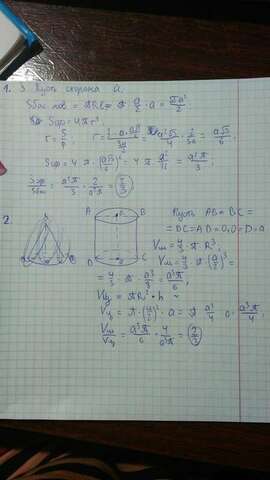 1. 3. Пусть сторона a.
Sбок пов = πRl = π · a/2 · a = πa²/2
Sсф = 4πr².
r = S/p; r = (1/2 · a · a√3/2)/(3a/2) = a²√3/4 · 2/3a = a√3/6;
Sсф = 4π · (a√3/6)² = 4π a²/12 = a²π/3;
Sсф/Sбок = a²π/3 · 2/a²π = 2/3.
2. A B Пусть AB = BC =
= DC = AD = O₁O = D = a
Vш = 4/3 π R³,
D C Vш = 4/3 π (a/2)³ =
= 4/3 · π · a³/8 = a³π/6;
Vц = πR² · h
Vц = π · (a/2)² · a = π a²/4 · a = a³π/4;
Vш/Vц = a³π/6 · 4/a³π = 2/3